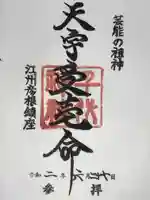 芸能の祖神
天宇受売命
江州彦根鎮座
令和二年六月十日
参拝